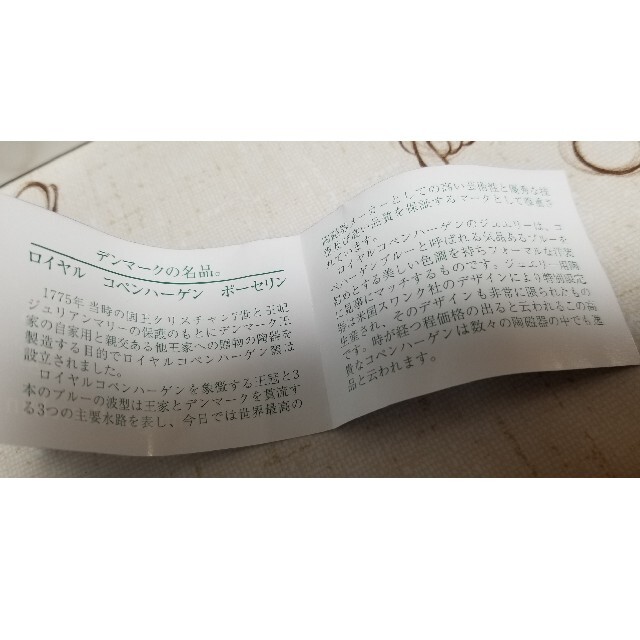 デンマークの名品。
ロイヤル コペンハーゲン ポーセリン
1775年当時の国王クリスチャン7世と王妃
ジュリアンマリーの保護のもとにデンマーク王
家の自家用と親交ある他王家への贈物の陶器を
製造する目的でロイヤルコペンハーゲン窯は
設立されました。
ロイヤルコペンハーゲンを象徴する王冠と3
本のブルーの波型は王家とデンマークを貫流す
る3つの主要水路を表し、今日では世界最高の
メーカーとしての高い芸術性と優秀な技
品質を保証するマークとして尊重さ
れています。
ロイヤルコペンハーゲンのジュエリーは、コ
ペンハーゲンブルーと呼ばれる気品あるブルーを
はじめとする美しい色調を持ちフォーマルな
に見事にマッチするものです。ジュエリー用陶
米国スワンク社のデザインにより特別設定
生産され、そのデザインも非常に限られたもの
です。時が経つ程価格の出ると云われるこの高
貴なコペンハーゲンは数々の陶磁器の中でも逸
品と云われます。